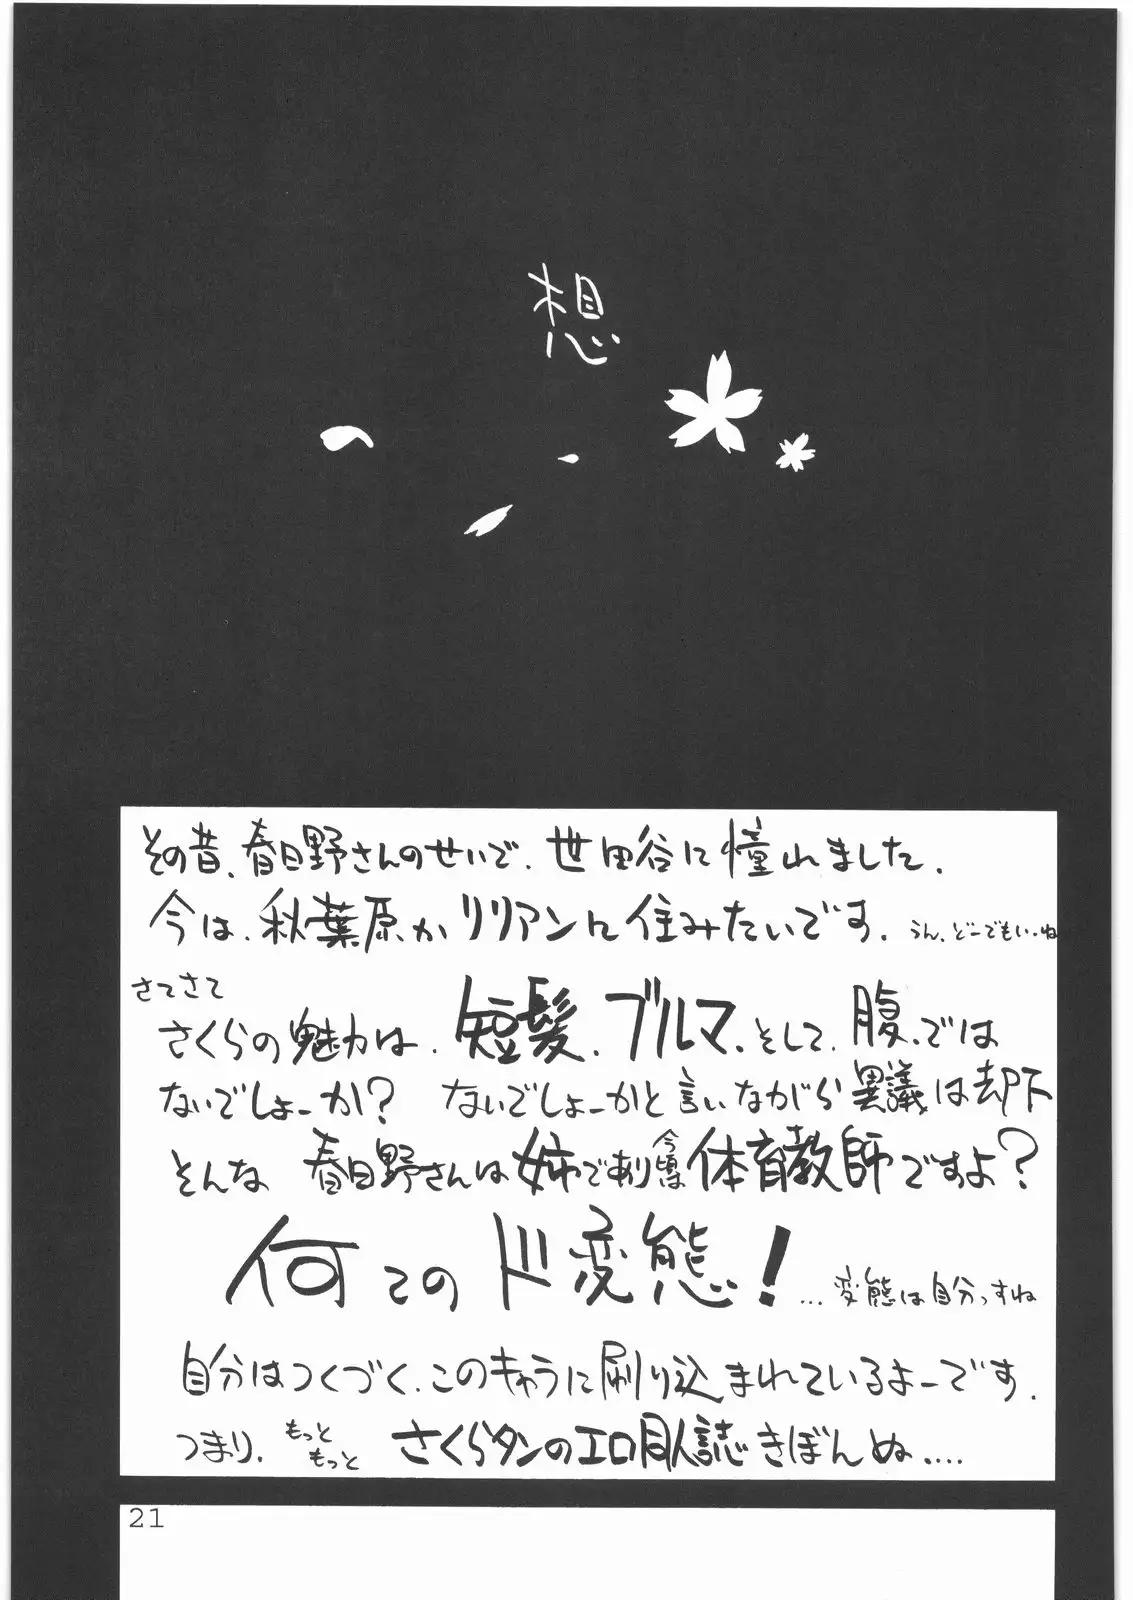 想
その昔、春日野さんのせいで、世田谷に憧れました。
今は、秋葉原かリリアンに住みたいです。 うん、どーでもいーね
さてさて
さくらの魅力は、短髪、ブルマ、そして、腹、では
ないでしょーか? ないでしょーかと言いながら異議は却下
そんな 春日野さんは姉であり今頃は体育教師ですよ?
何てのド変態! …変態は自分っすね
自分はつくづく、このキャラに刷り込まれているよーです。
つまり、もっともっと さくらタンのエロ同人誌きぼんぬ....
21